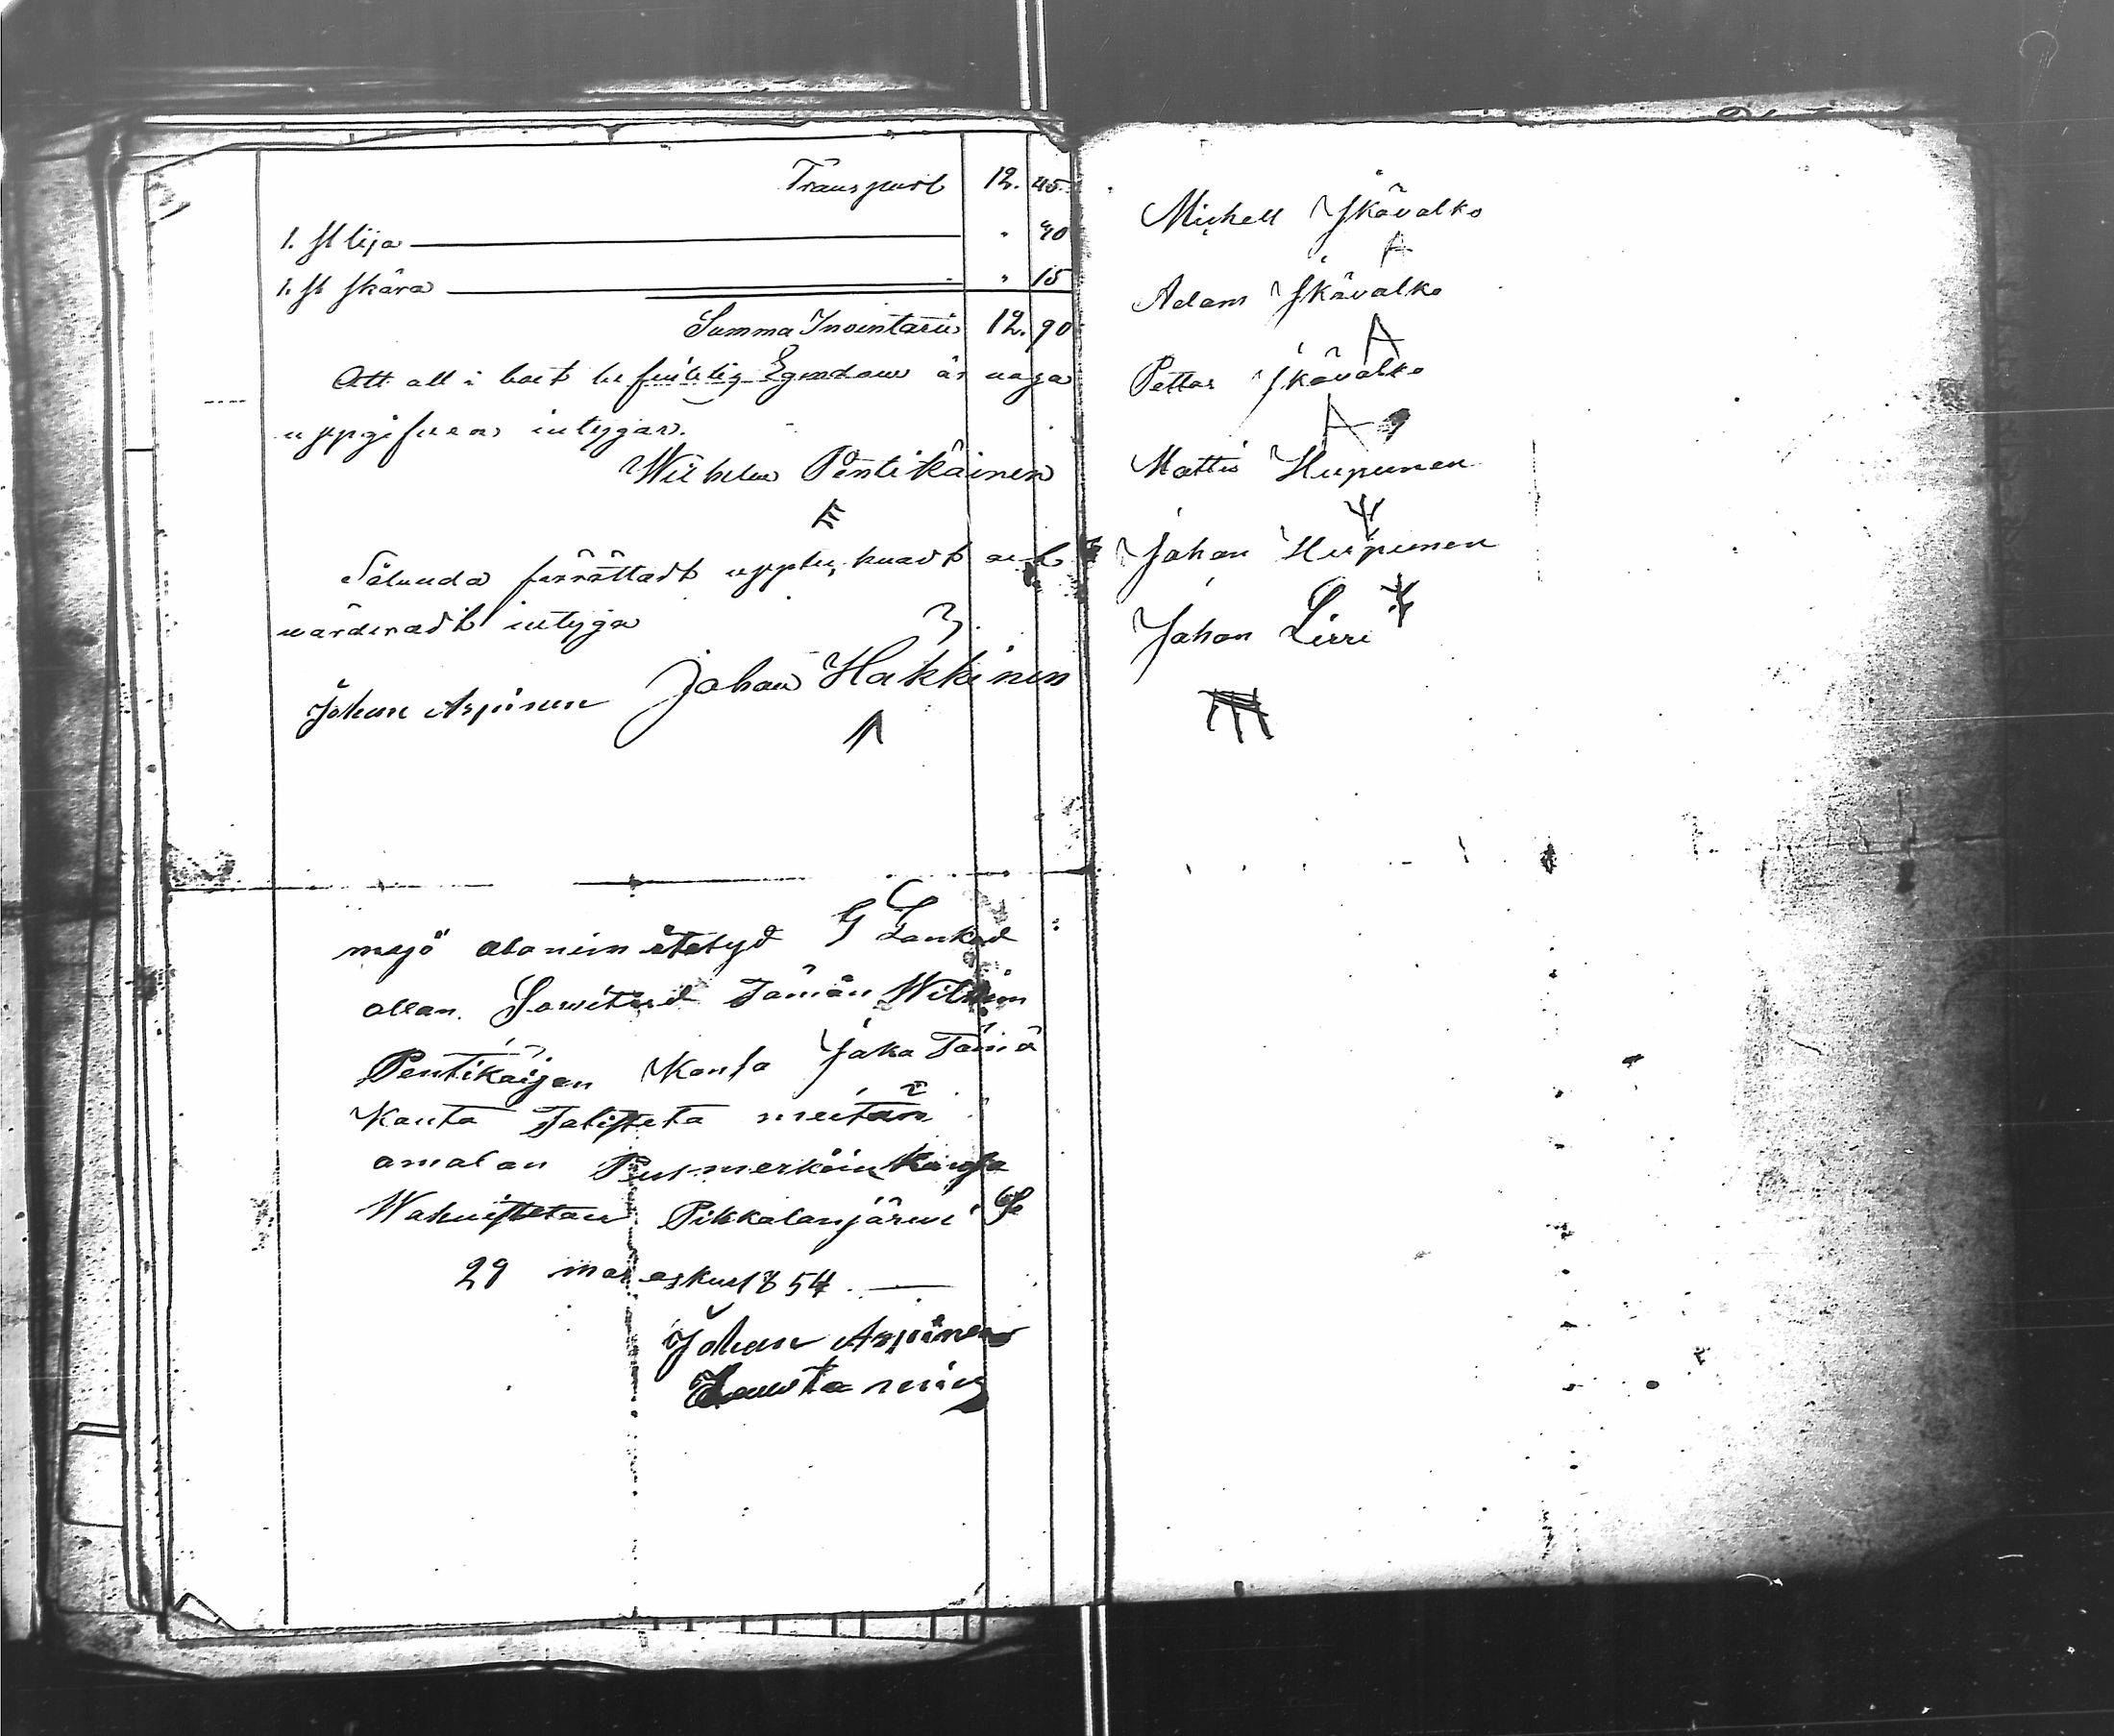 Transport 12. 45.
1. st lija " 40
1. st skära " 15
Summa Inventarii 12. 90
Att all i boet befindelig Egendom är noga
uppgifven intygar.
Wilhelm Pentikäinen
Sålunda förrättadt upptecknadt och
värderadt intyga
Johan Arpinen Johan Hakkinen
myö ala nimitetyd G Lankod
ollan Sowitud Tämän Wilhim
Pentikäijen Kansa Joka Tämä
Kauta Talisteta meitän
amalan Pumerköin kansa
Wahwistetan Pikkalanjärwi
29 maraskuu 1854
Johan Arpinen
Lautamies
Michell Skävalko
A
Adam Skävalko
A
Pettar Skävalko
A
Mattis Hupunen
Johan Hupunen
Johan Lirri